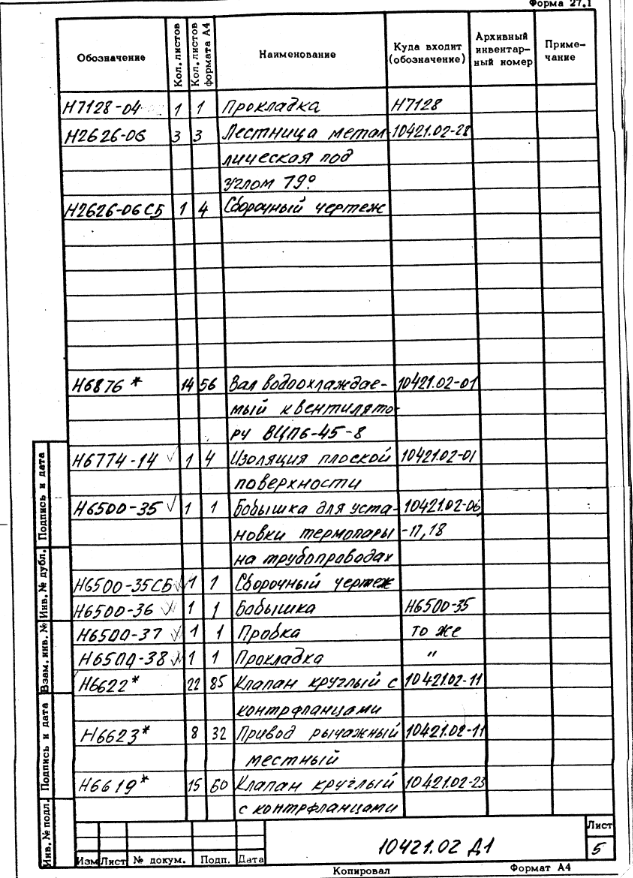 Форма 27.1
Обозначение Кол. листов Кол. листов формата А4 Наименование Куда входит (обозначение) Архивный инвентар-ный номер Приме-чание
Н7128-04 1 1 Прокладка Н7128
Н2626-06 3 3 Лестница метал- 10421.02-28
лическая под
углом 79°
Н2626-06СБ 1 4 Сборочный чертеж
Н6876 * 14 56 Вал водоохлаждае- 10421.02-01
мый к вентилято-
ру ВЦП6-45-8
Н6774-14 √ 1 4 Изоляция плоской 10421.02-01
поверхности
Н6500-35 √ 1 1 Бобышка для уста- 10421.02-06,
новки термопары -17,18
на трубопроводах
Н6500-35СБ √ 1 1 Сборочный чертеж
Н6500-36 √ 1 1 Бобышка Н6500-35
Н6500-37 √ 1 1 Пробка то же
Н6500-38 √ 1 1 Прокладка "
Н6622* 22 85 Клапан круглый с 10421.02-11
контрфланцами
Н6623* 8 32 Привод рычажный 10421.02-11
местный
Н6619* 15 60 Клапан круглый 10421.02-23
с контрфланцами
Инв. № подл. Подпись и дата Взам. инв. № Инв. № дубл. Подпись и дата
10421.02 Д1
Лист
5
Изм Лист № докум. Подп. Дата
Копировал Формат А4